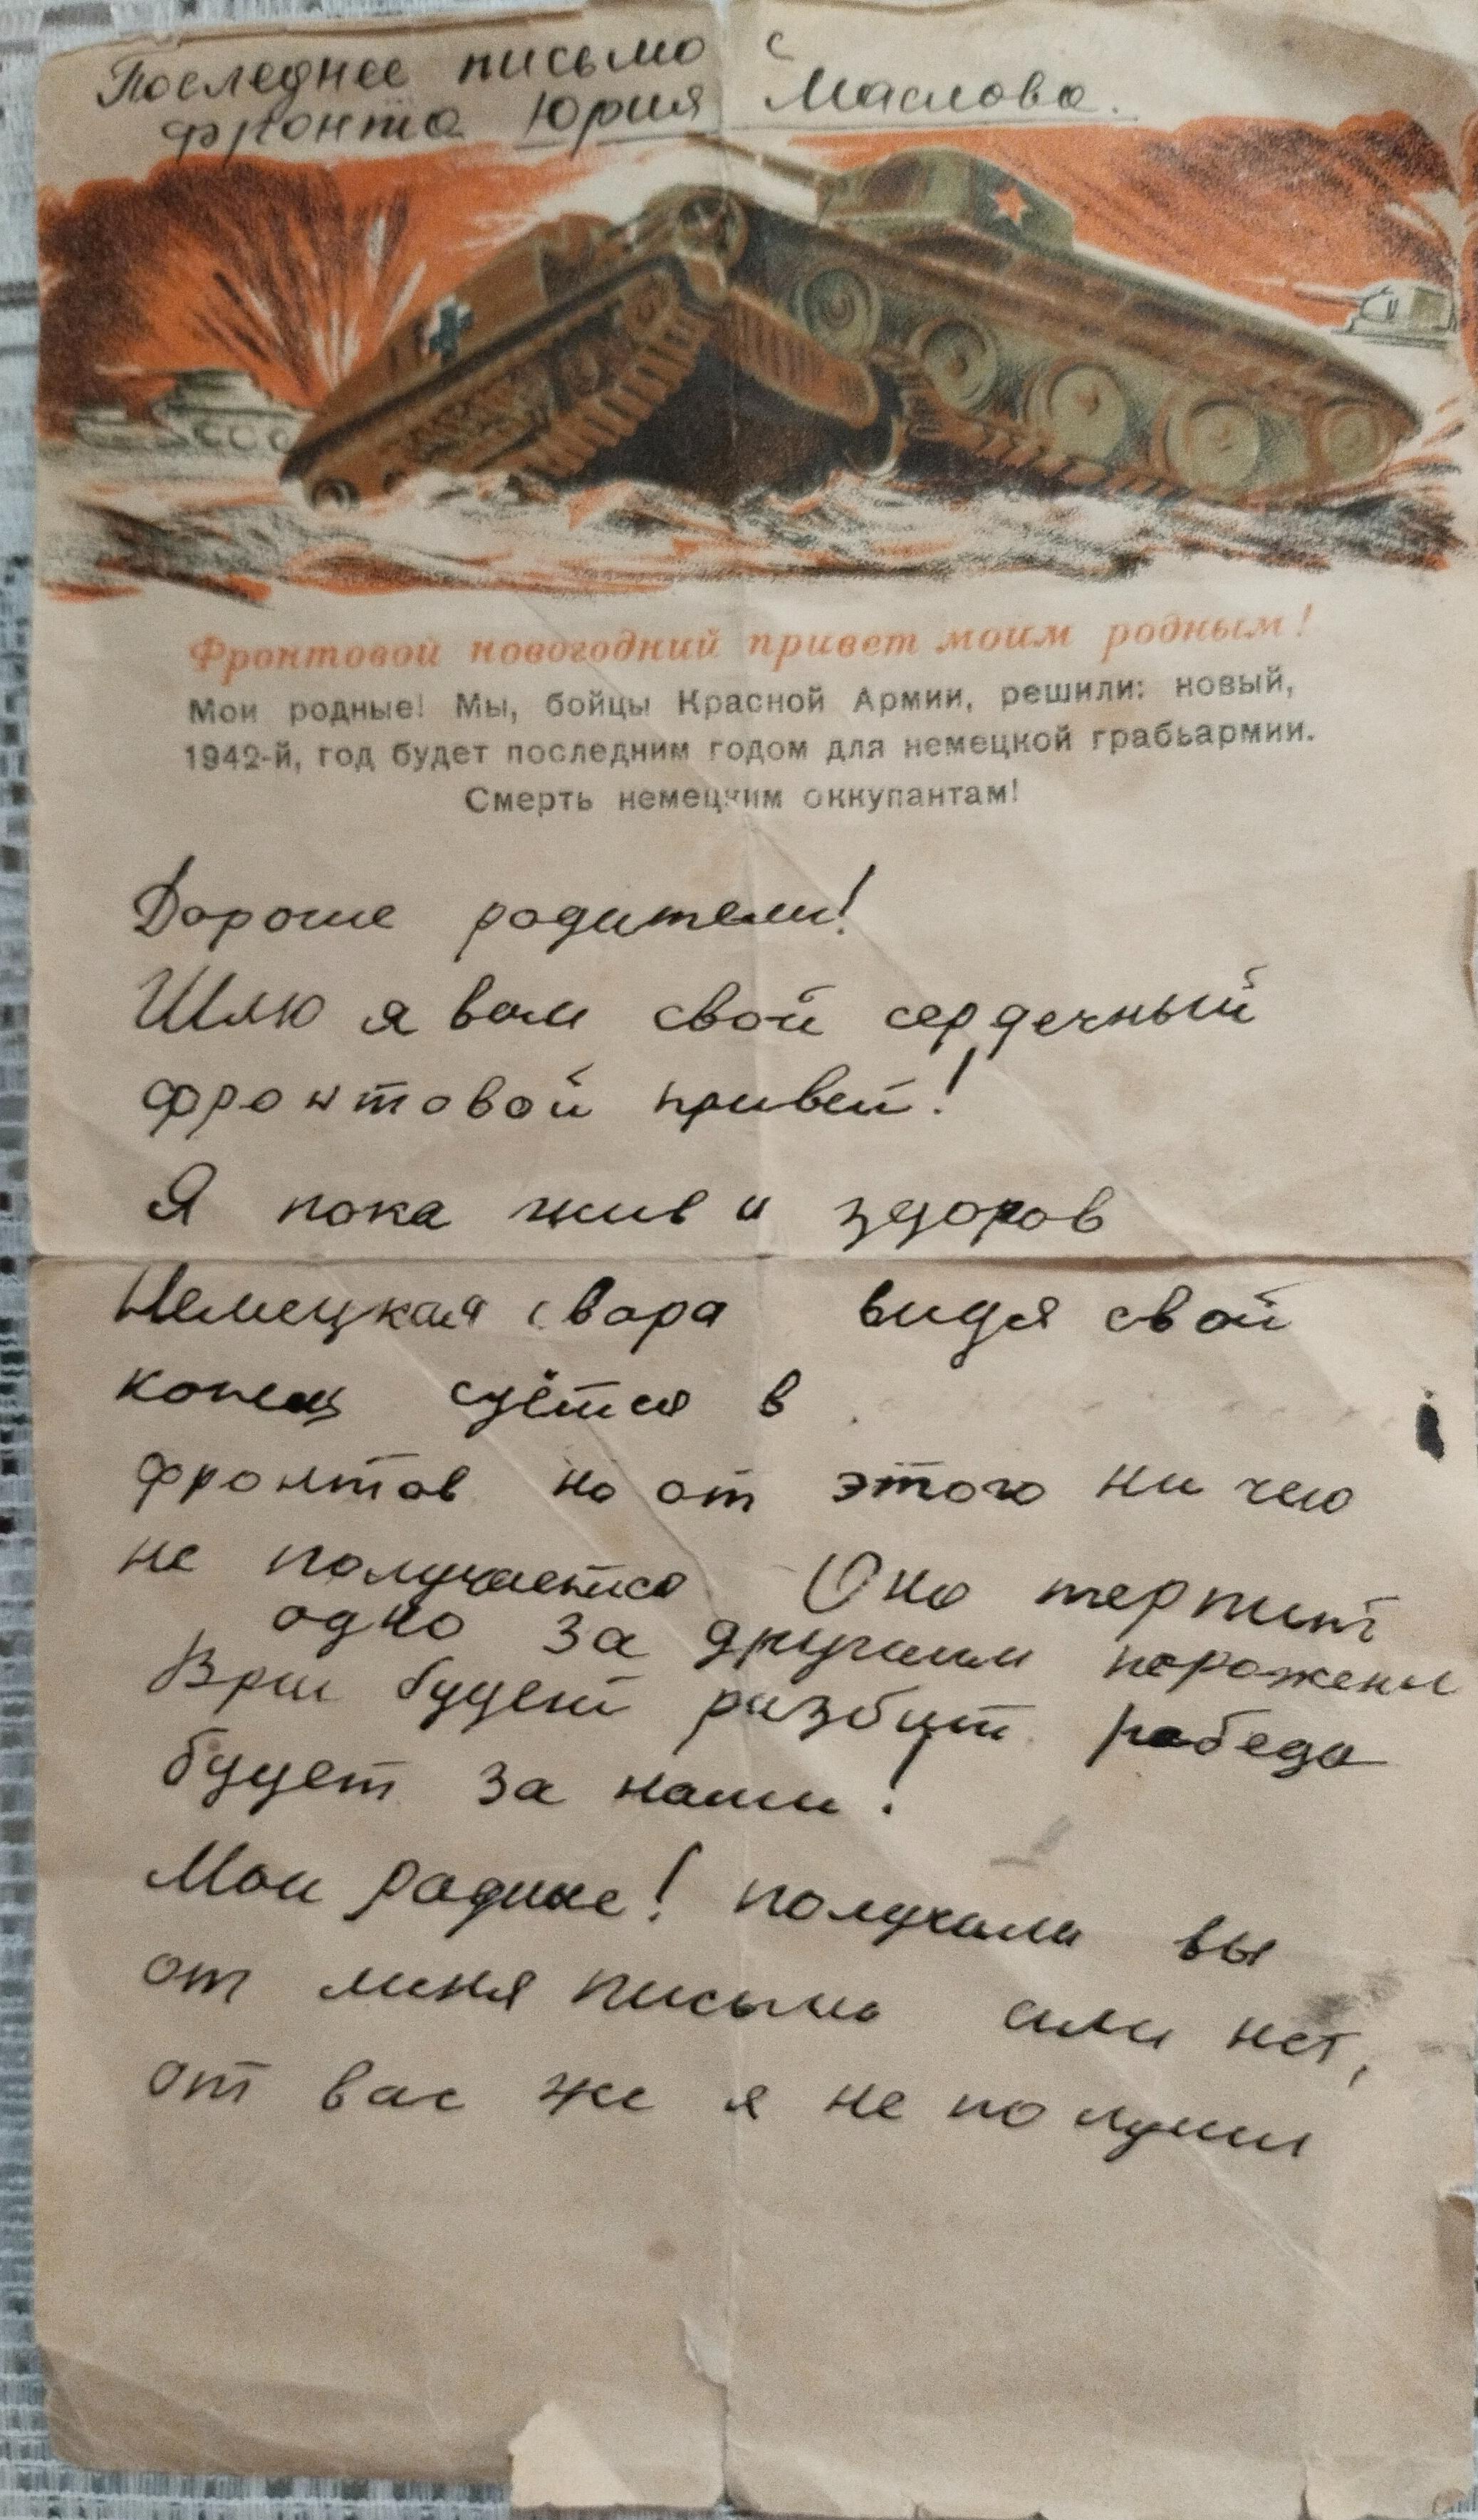 Последнее письмо с
фронта Юрия Маслова.
Фронтовой новогодний привет моим родным!
Мои родные! Мы, бойцы Красной Армии, решили: новый,
1942-й, год будет последним годом для немецкой грабьармии.
Смерть немецким оккупантам!
Дорогие родители!
Шлю я вам свой сердечный
фронтовой привет!
Я пока жив и здоров
Немецкая свора видя свой
конец суётся в
фронтов но от этого ни чего
не получается Она терпит
одно за другим поражения
Враг будет разбит победа
будет за нами!
Мои родные! получали вы
от меня письмо или нет,
от вас же я не получил